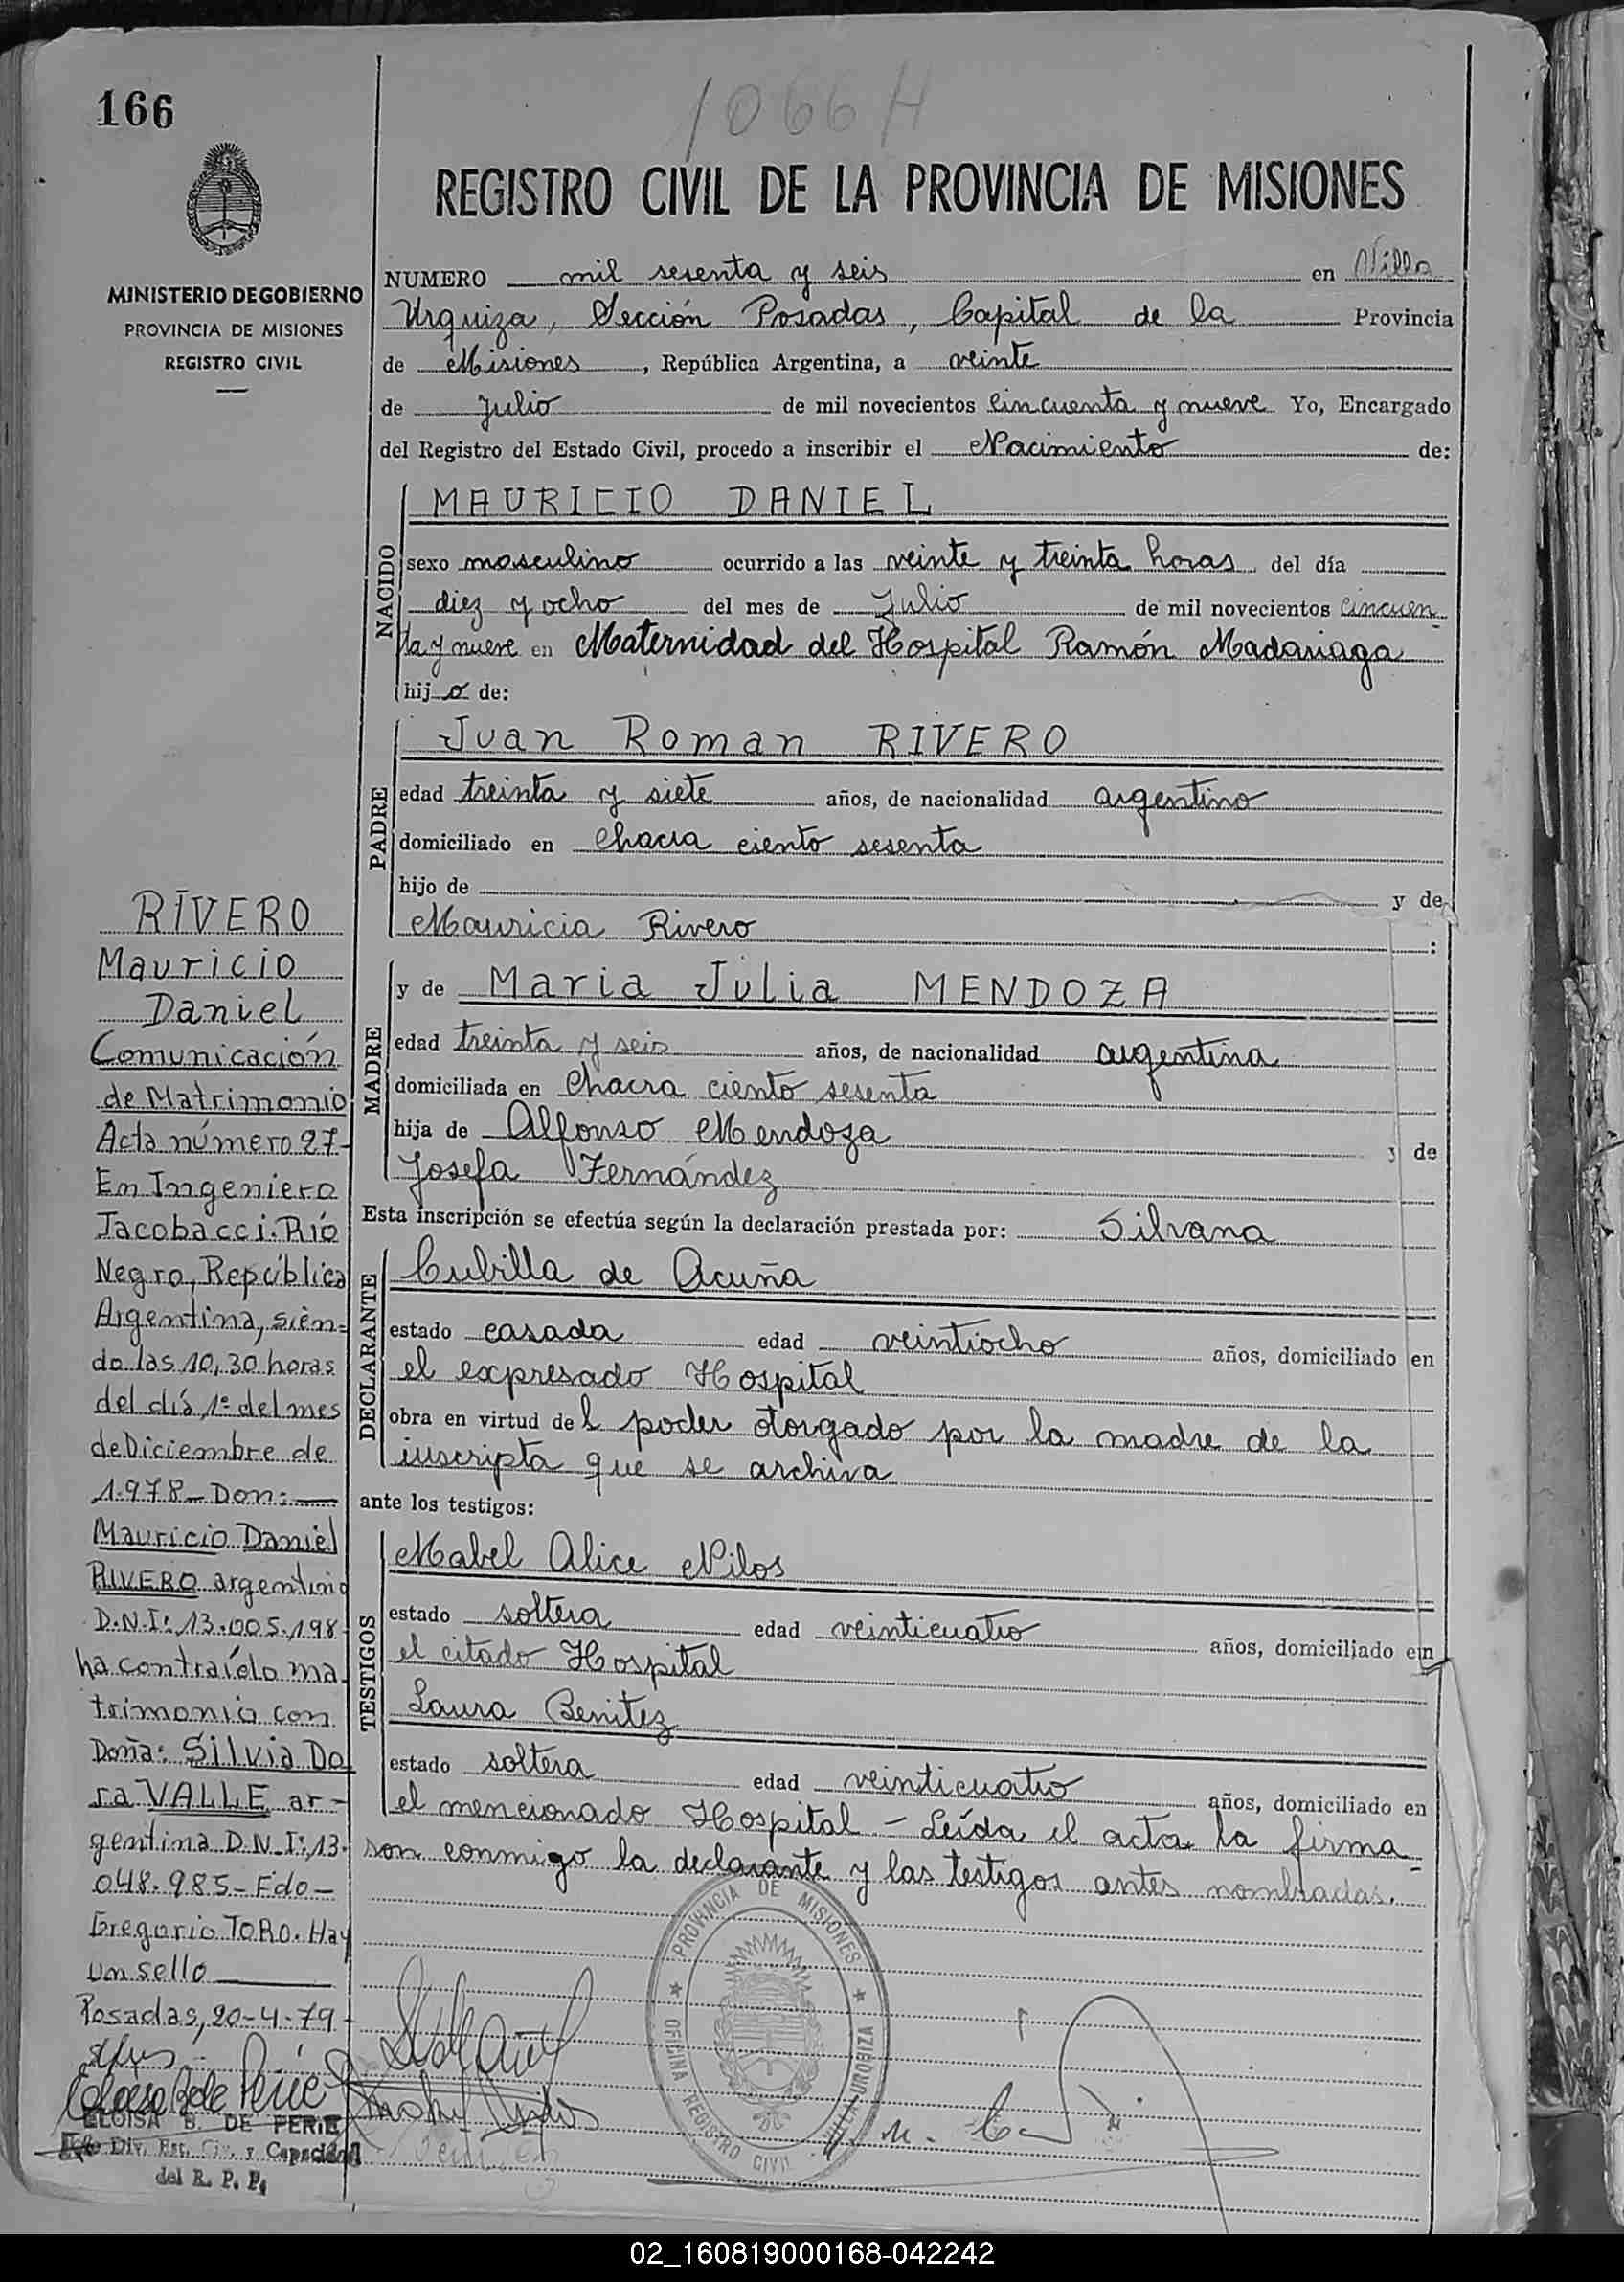 166
1066 H
MINISTERIO DE GOBIERNO
PROVINCIA DE MISIONES
REGISTRO CIVIL
REGISTRO CIVIL DE LA PROVINCIA DE MISIONES
NUMERO mil sesenta y seis en Villa
Urquiza, Sección Posadas, Capital de la Provincia
de Misiones, República Argentina, a veinte
de Julio de mil novecientos Cincuenta y nueve Yo, Encargado
del Registro del Estado Civil, procedo a inscribir el Nacimiento de:
NACIDO
MAURICIO DANIEL
sexo masculino ocurrido a las veinte y treinta horas del día
diez y ocho del mes de Julio de mil novecientos cincuen
ta y nueve en Maternidad del Hospital Ramón Madariaga
hijo de:
PADRE
Juan Roman RIVERO
edad treinta y siete años, de nacionalidad argentino
domiciliado en Chacra ciento sesenta
hijo de y de
Mauricia Rivero :
MADRE
y de Maria Julia MENDOZA
edad treinta y seis años, de nacionalidad argentina
domiciliada en Chacra ciento sesenta
hija de Alfonso Mendoza y de
Josefa Fernández
Esta inscripción se efectúa según la declaración prestada por: Silvana
DECLARANTE
Cubilla de Acuña
estado casada edad veintiocho años, domiciliado en
el expresado Hospital
obra en virtud del poder otorgado por la madre de la
inscripta que se archiva
ante los testigos:
TESTIGOS
Mabel Alice Nilos
estado soltera edad veinticuatro años, domiciliado en
el citado Hospital
Laura Benitez
estado soltera edad veinticuatro años, domiciliado en
el mencionado Hospital - Leída el acta la firma
son conmigo la declarante y las testigos antes nombradas.
PROVINCIA DE MISIONES
OFICINA REGISTRO CIVIL VILLA URQUIZA
RIVERO
Mauricio
Daniel
Comunicación
de Matrimonio
Acta número 27-
En Ingeniero
Jacobacci. Río
Negro, República
Argentina, sien-
do las 10,30 horas
del día 1º del mes
de Diciembre de
1.978- Don:
Mauricio Daniel
RIVERO argentino
D.N.I: 13.005.198
ha contraído ma
trimonio con
Doña: Silvia Do
ra VALLE ar-
gentina D.N.I: 13.
048.985- Fdo-
Gregorio TORO. Hay
un sello
Posadas, 20-4-79
ELOISA B. DE PERIE
Div. Est. Civ. y Capacidad
del R. P. P.
02_160819000168-042242